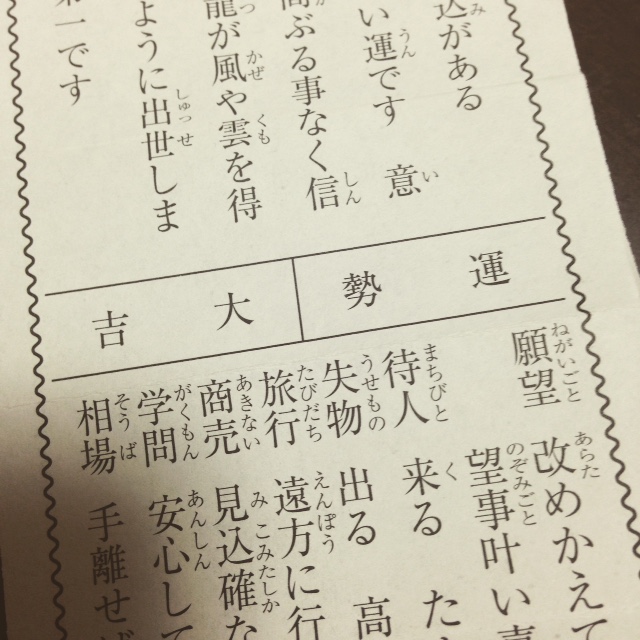 込がある
い運です 意
高ぶる事なく信
龍が風や雲を得
ように出世しま
第一です
運勢 大吉
願望 改めかえて
望事叶い喜
待人 来る た
失物 出る 高
旅行 遠方に行
商売 見込確な
学問 安心して
相場 手離せば